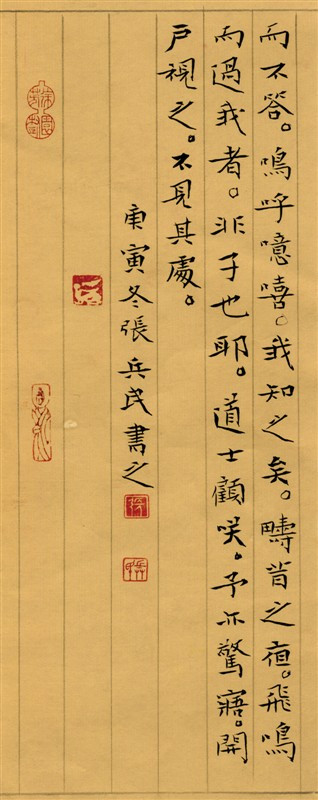 而不答。嗚呼噫嘻。我知之矣。疇昔之夜。飛鳴
而過我者。非子也耶。道士顧咲。予亦驚寤。開
戶視之。不見其處。
庚寅冬張兵民書之